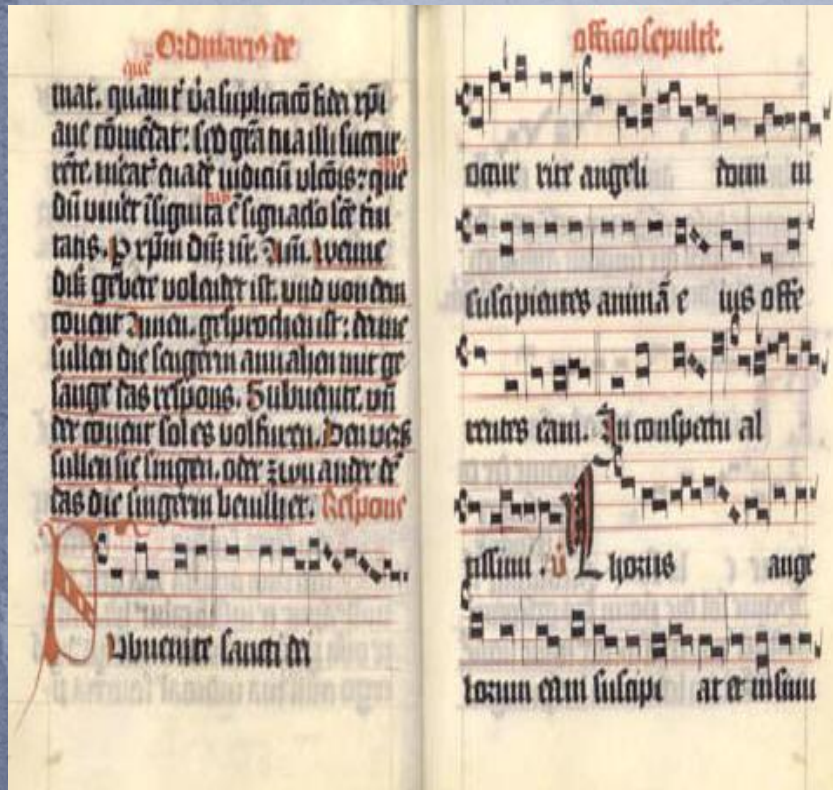 Ordinariꝰ de
que
nat. quam t̄ v̄a suplicacō fidei xp̄i
ane cōmēdat: sed gr̄a tua illi succur
rēte. meat᷑ euade iudiciū vlcōis: que
dū viuer̄ īsignita ē signac̄lo sc̄e t̄ni
tatis. P xp̄m dn̄m nr̄m. Am̄. Wenne
diß gebete volendet ist. vnd von dem
couent Amen. gesprochen ist: denne
sullen die sengerin anuahen mit ge
sange das respons. Subuenite. vn̄
der couent sol es volfuren. Den vers
sullen sie singen. oder zwu ander den
das die singerin beuilhet. Respons
Subuenite sancti dei
officio sepult᷑.
occurrite angeli domi ni
suscipientes animā e ius offe
rentes eam. In conspectu al
tissimi. v̄ Chorus ange
lorum eam suscipi at et in sinu